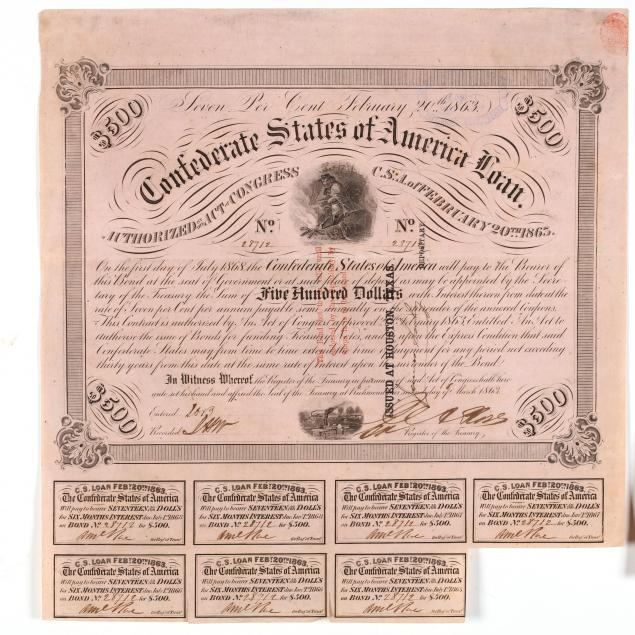 Seven Per Cent February, 20th 1863.
$500
$500
Confederate States of America Loan.
AUTHORIZED BY ACT OF CONGRESS C.S.A. of FEBRUARY 20TH 1863.
No No
28712 28712
On the first day of July 1868, the Confederate States of America will pay to the Bearer of
this Bond at the seat of Government or at such place of deposit as may be appointed by the Secre-
tary of the Treasury the Sum of Five Hundred Dollars with Interest thereon from date at the
rate of Seven per Cent per annum payable semi annually on the surrender of the annexed Coupons.
This Contract is authorized by An Act of Congress approved February 1863 Entitled An Act to
authorise the issue of Bonds for funding Treasury Notes, and upon the Express Condition that said
Confederate States may from time to time extend the time of payment for any period not exceeding
thirty years from this date at the same rate of Interest upon the surrender of the Bond.
In Witness Whereof the Register of the Treasury in pursuance of said Act of Congress hath here
unto set his hand and affixed the Seal of the Treasury at Richmond this day of March 1863
ISSUED AT HOUSTON, TEXAS.
DEPOSITARY
$500
$500
Entered
Recorded
Register of the Treasury,
C.S. LOAN FEBY 20TH 1863. C.S. LOAN FEBY 20TH 1863. C.S. LOAN FEBY 20TH 1863. C.S. LOAN FEBY 20TH 1863.
The Confederate States of America The Confederate States of America The Confederate States of America The Confederate States of America
Will pay to bearer SEVENTEEN DOLLS Will pay to bearer SEVENTEEN DOLLS Will pay to bearer SEVENTEEN DOLLS Will pay to bearer SEVENTEEN DOLLS
for SIX MONTHS INTEREST due for SIX MONTHS INTEREST due for SIX MONTHS INTEREST due for SIX MONTHS INTEREST due
on BOND No 28712 for $500. on BOND No 28712 for $500. on BOND No 28712 for $500. on BOND No 28712 for $500.
C.S. LOAN FEBY 20TH 1863. C.S. LOAN FEBY 20TH 1863. C.S. LOAN FEBY 20TH 1863.
The Confederate States of America The Confederate States of America The Confederate States of America
Will pay to bearer SEVENTEEN DOLLS Will pay to bearer SEVENTEEN DOLLS Will pay to bearer SEVENTEEN DOLLS
for SIX MONTHS INTEREST due for SIX MONTHS INTEREST due for SIX MONTHS INTEREST due
on BOND No 28712 for $500. on BOND No 28712 for $500. on BOND No 28712 for $500.